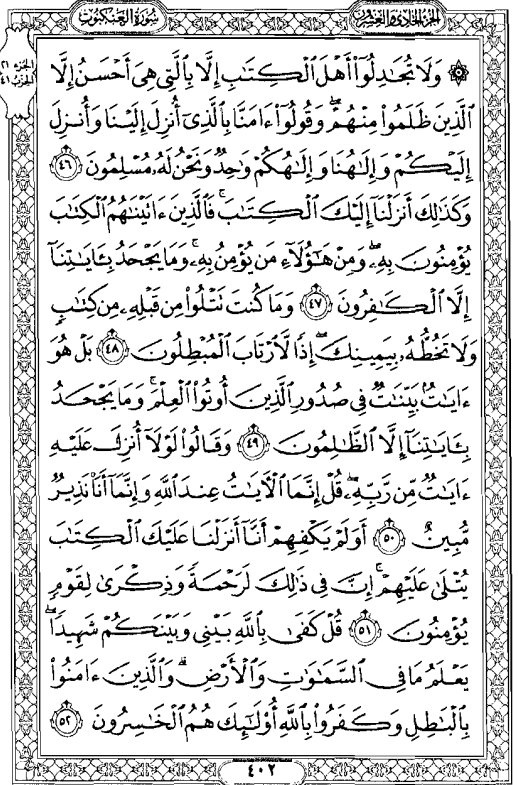 سُورَةُ العَنكَبُوتِ
الجُزءُ الحَادِي وَالعِشرُونَ
الجزء ٢١
الحزب ٤١
۞ وَلَا تُجَٰدِلُوٓا۟ أَهْلَ ٱلْكِتَٰبِ إِلَّا بِٱلَّتِى هِىَ أَحْسَنُ إِلَّا
ٱلَّذِينَ ظَلَمُوا۟ مِنْهُمْ ۖ وَقُولُوٓا۟ ءَامَنَّا بِٱلَّذِىٓ أُنزِلَ إِلَيْنَا وَأُنزِلَ
إِلَيْكُمْ وَإِلَٰهُنَا وَإِلَٰهُكُمْ وَٰحِدٌ وَنَحْنُ لَهُۥ مُسْلِمُونَ ٤٦
وَكَذَٰلِكَ أَنزَلْنَآ إِلَيْكَ ٱلْكِتَٰبَ ۚ فَٱلَّذِينَ ءَاتَيْنَٰهُمُ ٱلْكِتَٰبَ
يُؤْمِنُونَ بِهِۦ ۖ وَمِنْ هَٰٓؤُلَآءِ مَن يُؤْمِنُ بِهِۦ ۚ وَمَا يَجْحَدُ بِـَٔايَٰتِنَآ
إِلَّا ٱلْكَٰفِرُونَ ٤٧ وَمَا كُنتَ تَتْلُوا۟ مِن قَبْلِهِۦ مِن كِتَٰبٍ
وَلَا تَخُطُّهُۥ بِيَمِينِكَ ۖ إِذًا لَّٱرْتَابَ ٱلْمُبْطِلُونَ ٤٨ بَلْ هُوَ
ءَايَٰتٌۢ بَيِّنَٰتٌ فِى صُدُورِ ٱلَّذِينَ أُوتُوا۟ ٱلْعِلْمَ ۚ وَمَا يَجْحَدُ
بِـَٔايَٰتِنَآ إِلَّا ٱلظَّٰلِمُونَ ٤٩ وَقَالُوا۟ لَوْلَآ أُنزِلَ عَلَيْهِ
ءَايَٰتٌ مِّن رَّبِّهِۦ ۖ قُلْ إِنَّمَا ٱلْـَٔايَٰتُ عِندَ ٱللَّهِ وَإِنَّمَآ أَنَا۠ نَذِيرٌ
مُّبِينٌ ٥٠ أَوَلَمْ يَكْفِهِمْ أَنَّآ أَنزَلْنَا عَلَيْكَ ٱلْكِتَٰبَ
يُتْلَىٰ عَلَيْهِمْ ۚ إِنَّ فِى ذَٰلِكَ لَرَحْمَةً وَذِكْرَىٰ لِقَوْمٍ
يُؤْمِنُونَ ٥١ قُلْ كَفَىٰ بِٱللَّهِ بَيْنِى وَبَيْنَكُمْ شَهِيدًا ۖ
يَعْلَمُ مَا فِى ٱلسَّمَٰوَٰتِ وَٱلْأَرْضِ ۗ وَٱلَّذِينَ ءَامَنُوا۟
بِٱلْبَٰطِلِ وَكَفَرُوا۟ بِٱللَّهِ أُو۟لَٰٓئِكَ هُمُ ٱلْخَٰسِرُونَ ٥٢
٤٠٢